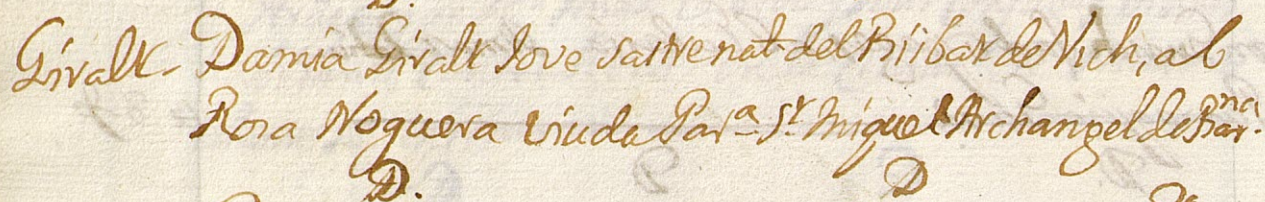 Giralt - Damia Giralt Jove sastre nat. del Bisbat de Vich, ab
Rosa Noguera viuda Par.a St. Miquel Archangel de Bar.na
D. D